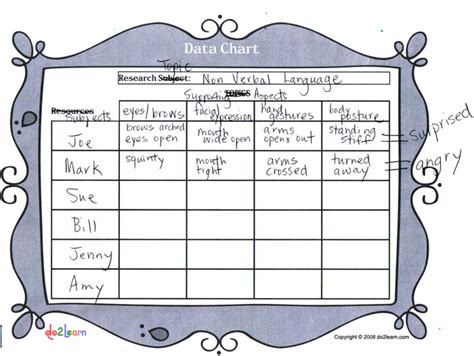 Data Chart
Topic
Research Subject: Non Verbal Language
Supporting TOPICS Aspects
Resources
Subjects
eyes/brows
facial expression
hand gestures
body posture
Joe
brows arched eyes open
mouth wide open
arms open out
standing stiff
= surprised
Mark
squinty
mouth tight
arms crossed
turned away
= angry
Sue
Bill
Jenny
Amy
do2learn
Copyright © 2008 do2learn.com